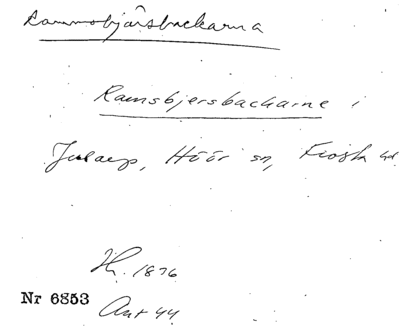 Rammsbjärsbackarna
Ramsbjersbackarne i
Jularp, Höör sn, Frosta hd.
1876
Nr 6853
Ant 44